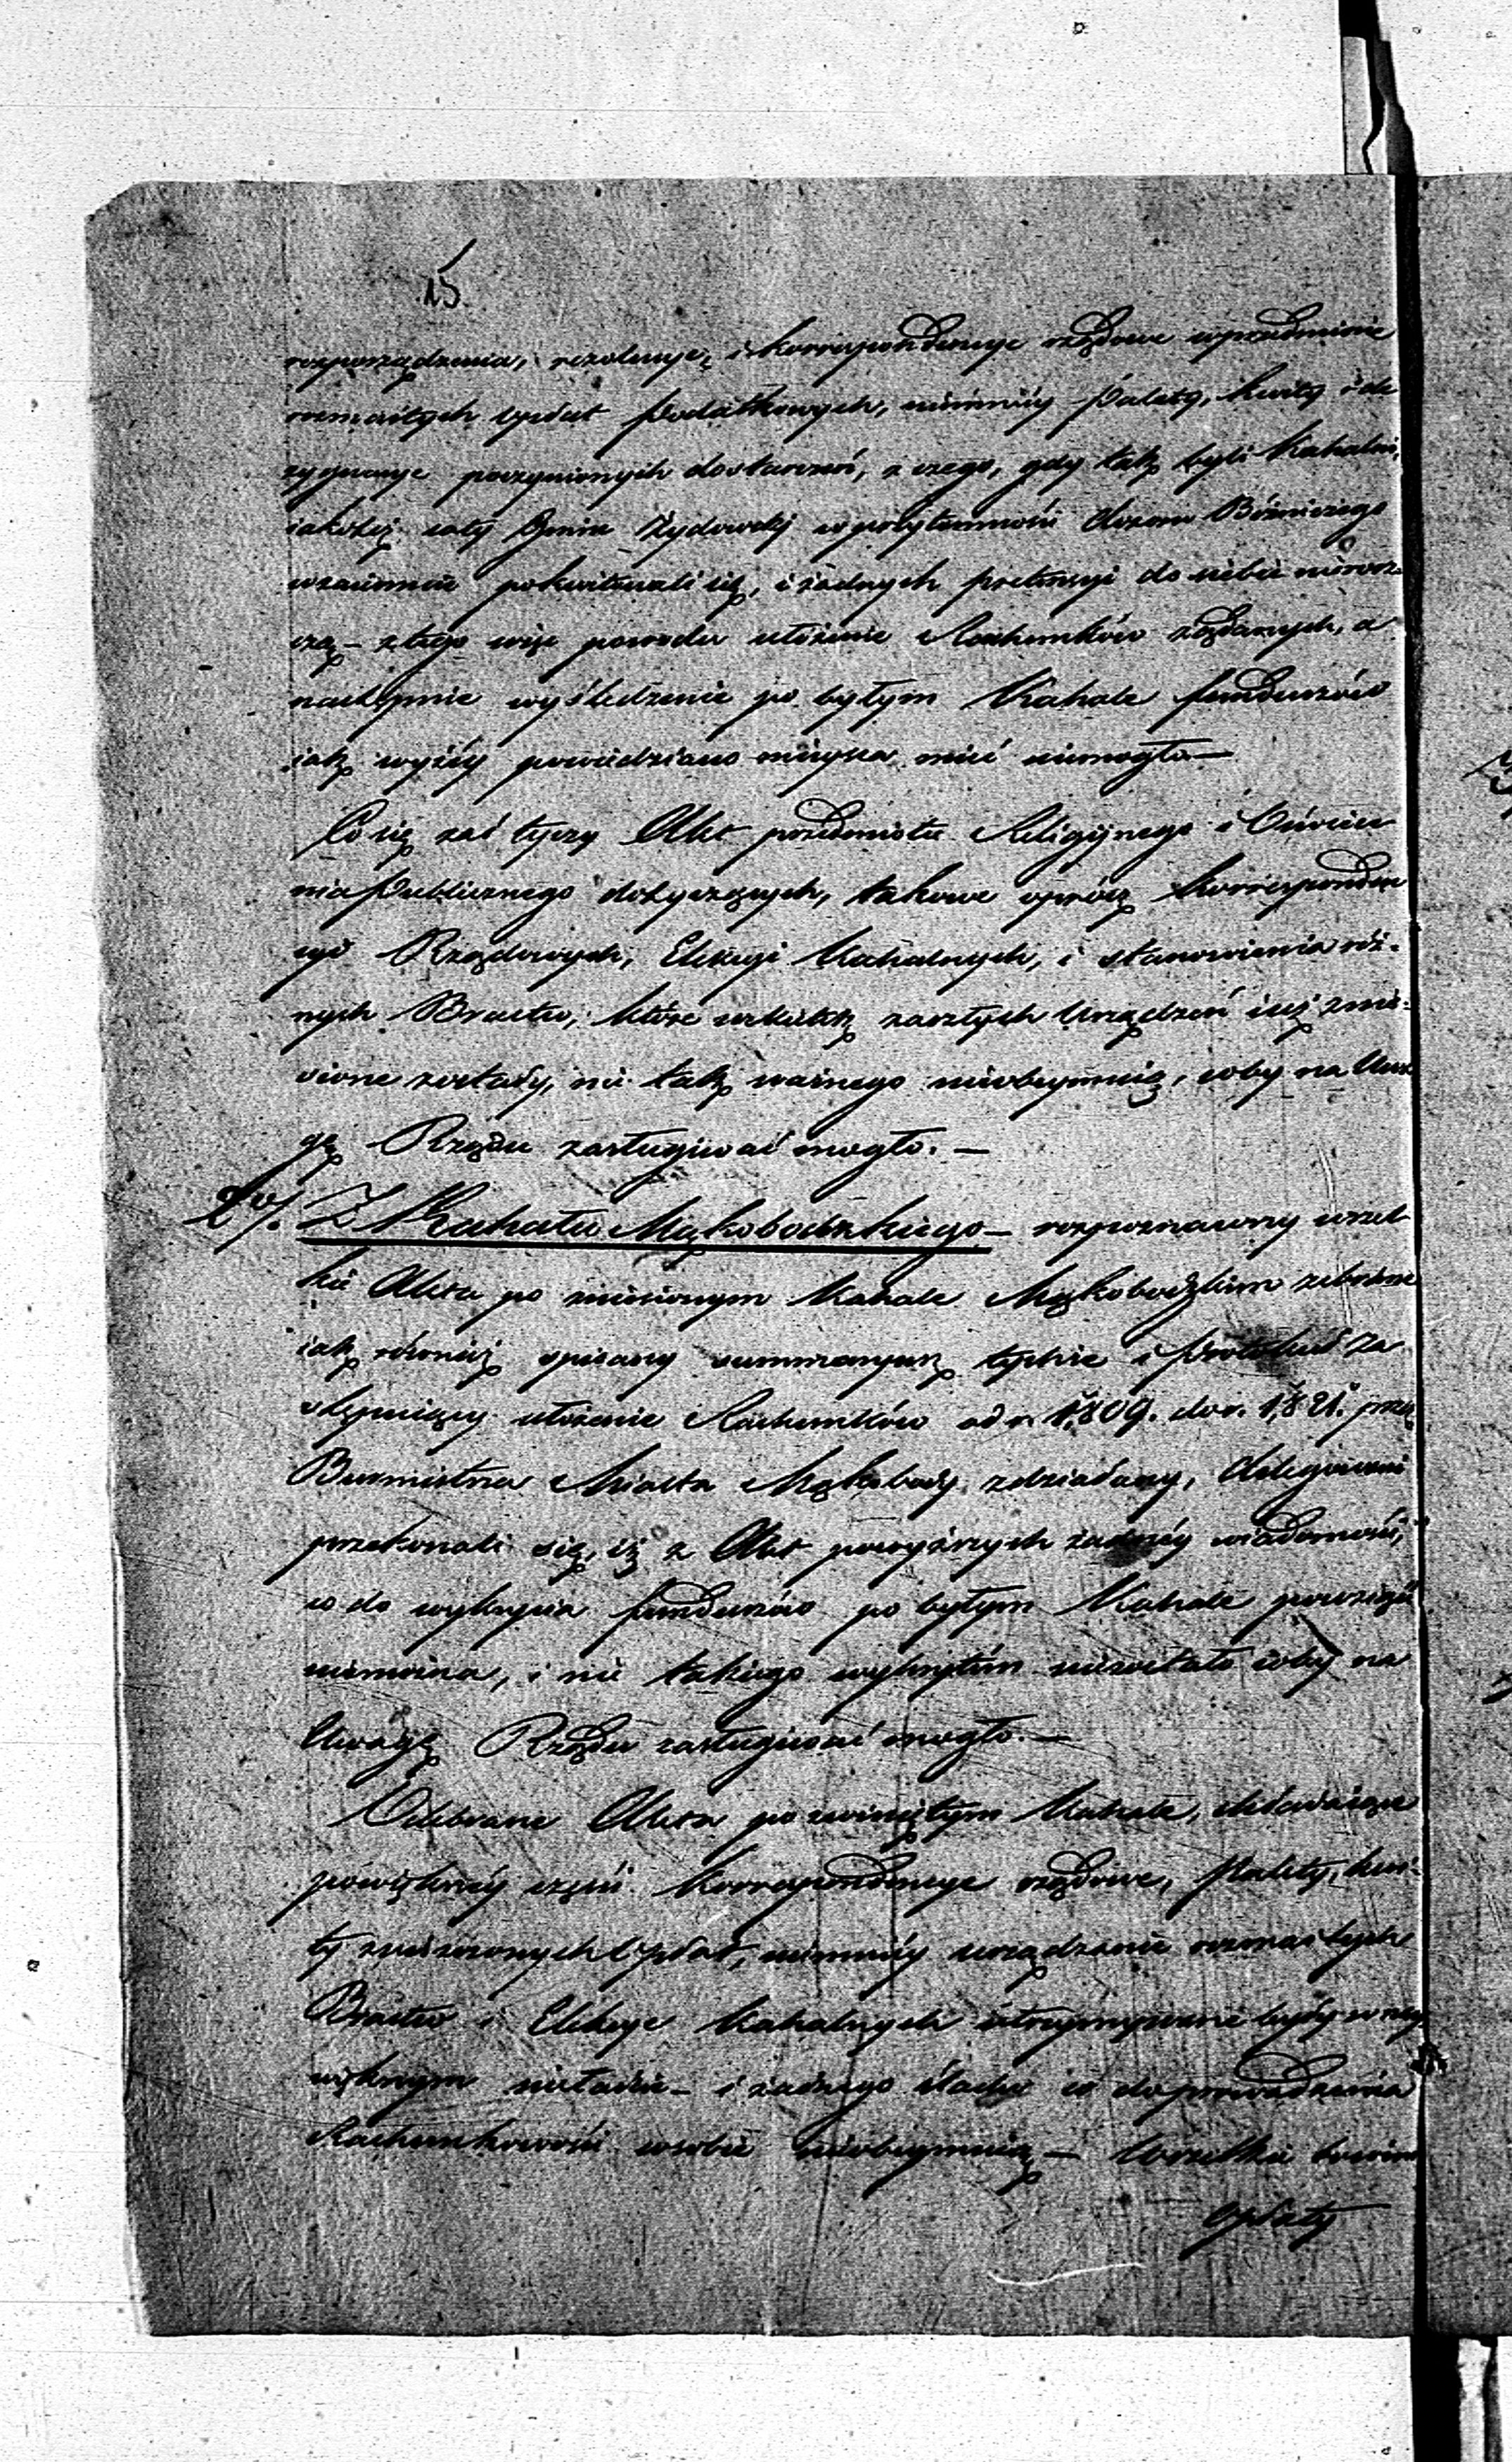 15
rozporządzenia, rezolucye, i korrespondencye rządowe wprzedmiocie
rozmaitych opłat podatkowych, niemniéy Palety, kwity i de
cyzye poczynionych dostarczeń, z czego, gdy tak byli Kahalni,
iakoteż cały Gmin Żydowski w przytomności dozoru Bożniczego
wzaiemnie pokwitowali się, i żadnych pretensyi do siebie nierosz-
czą – z tego więc powodu ułożenie Rachunków żądanych, a
następnie wyśledzenie po byłym Kahale funduszów
iak wyżéy powiedziano mieysca mieć niemogło —
Co się zaś tyczy Akt przedmiotu Religijnego i Oświece
nia Publicznego dotyczących, takowe oprócz korresponden
cyi Rządowych, Elekcyi Kahalnych, i stanowienia róż-
nych Bractw, które wskutek zaszłych Urządzeń iuż znie-
sione zostały, nic tak ważnego nieobeymuią, coby na Uwa
gę Rządu zasługiwać mogło. —
2o/. Z Kahału Mąkobodzkiego – rozpoznawszy wszel
kie Akta po zniesionym Kahale Mąkobodzkim zebrane
iak również spisany summaryusz tychże i protokuł za
stępuiący ułożenie Rachunków od r. 1809. do r. 1821. przez
Burmistrza Miasta Mąkobody zdziałany, delegowani
przekonali się, iż z Akt powyższych żadnéy wiadomości,
co do wykrycia funduszów po byłym Kahale powziąść
niemożna, i nic takiego wykrytem niezostało coby na
Uwagę Rządu zasługiwać mogło. —
Odebrane Akta po zwiniętym Kahale, składaiące
powiększéy części korrespondencye rządowe, Palety, kwi-
ty zniszczonych Opłat, niemniéy urządzenie rozmaitych
Bractw i Elekcye Kahalnych utrzymywane były w nay
większym nieładzie – i żadnego śladu co do prowadzenia
Rachunkowości w sobie nieobeymuią – Wszelkie bowiem
opłaty